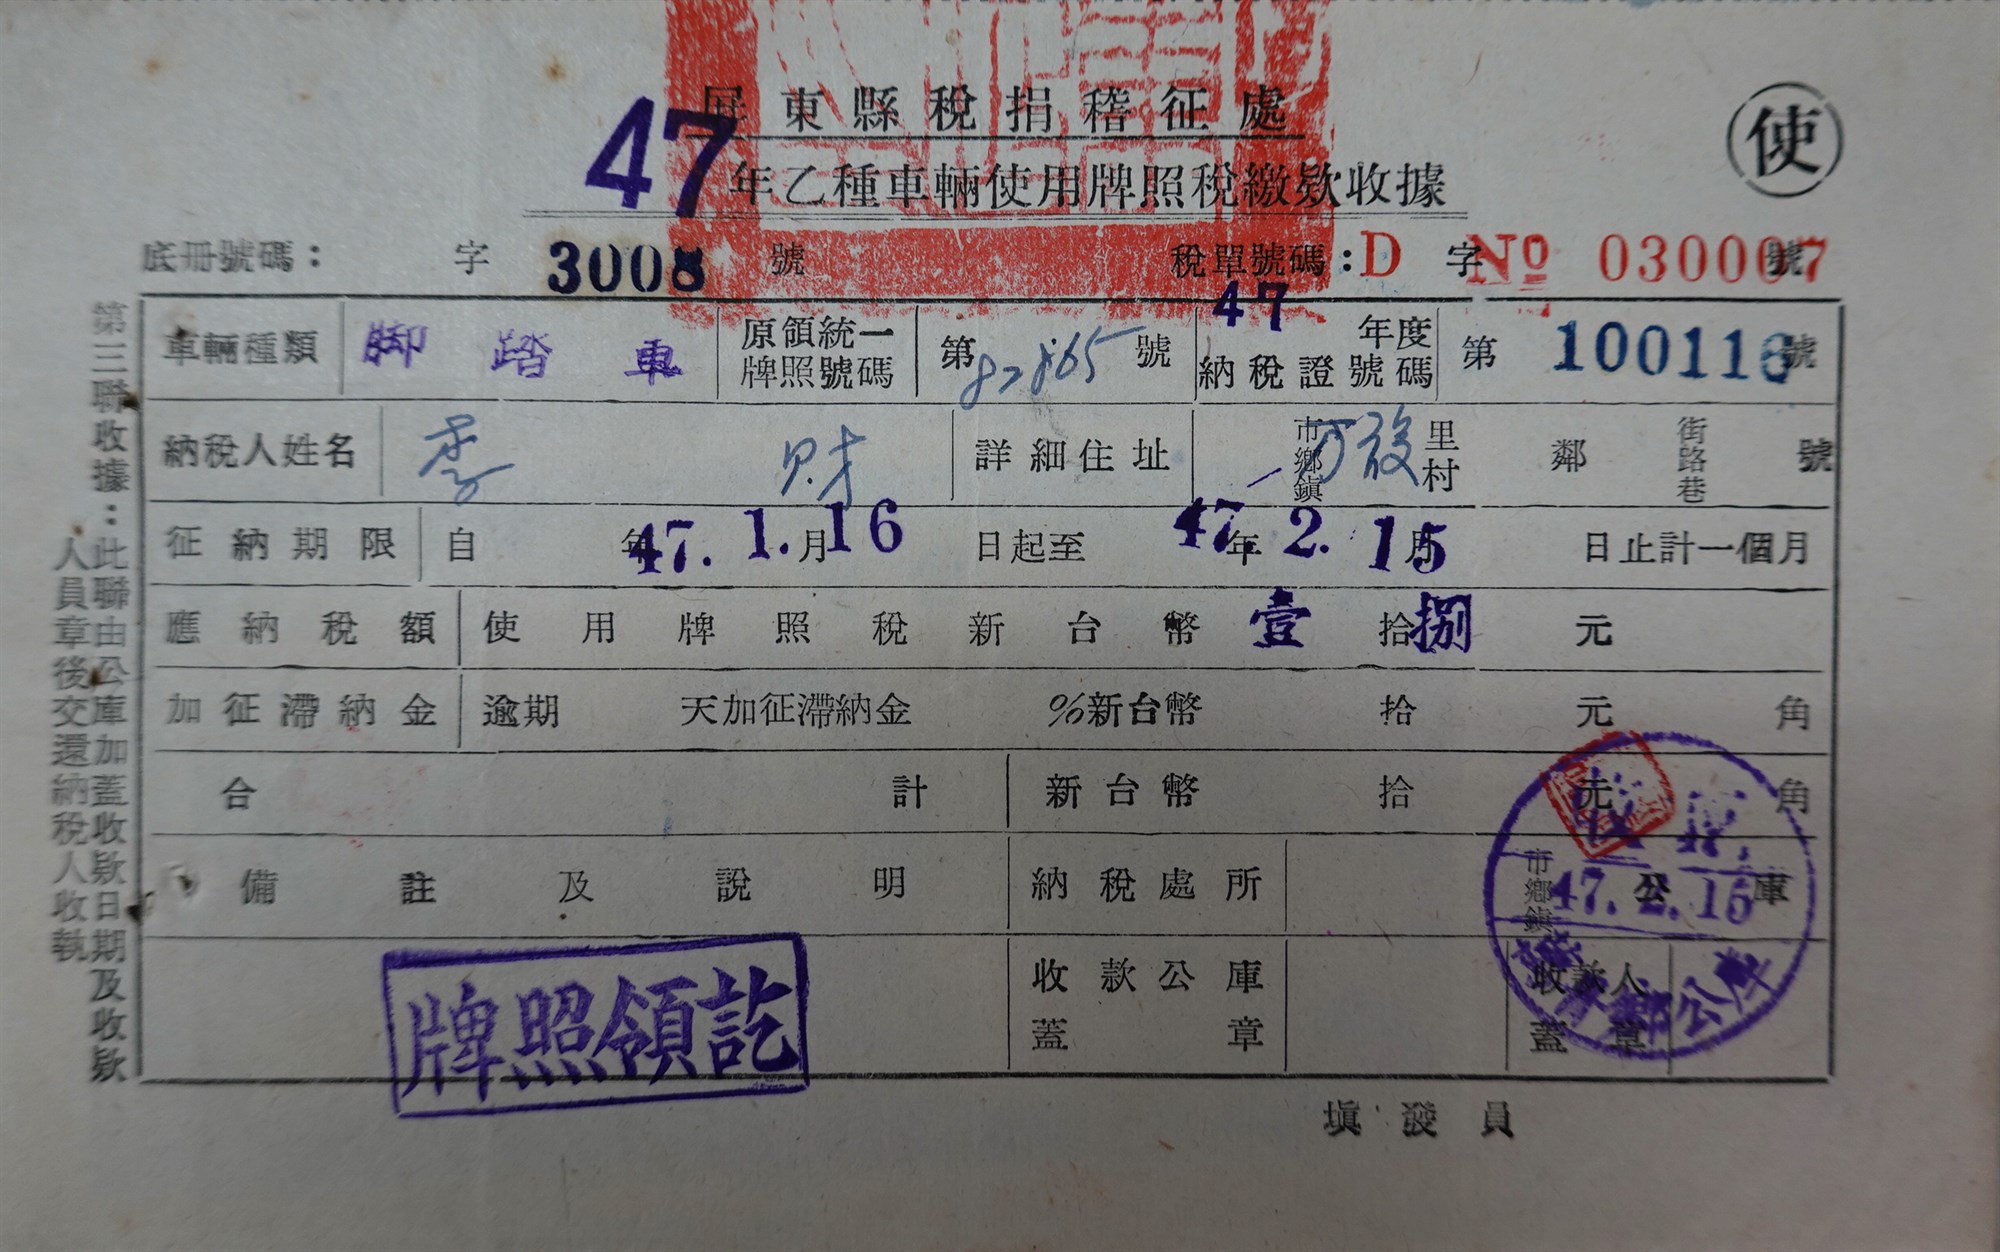 屏東縣稅捐稽征處
47年乙種車輛使用牌照稅繳欵收據
使
底冊號碼： 字 3008 號 稅單號碼：D 字 № 030007 號
車輛種類 脚踏車 原領統一牌照號碼 第 82865 號 47 年度納稅證號碼 第 100116 號
納稅人姓名 李 財 詳細住址 市鄉鎮 里村 鄰 街路巷 號
征納期限 自 47. 年 1. 月 16 日起至 47. 年 2. 月 15 日止計一個月
應納稅額 使用牌照稅新台幣 壹 拾 捌 元
加征滯納金 逾期 天加征滯納金 %新台幣 拾 元 角
合計 新台幣 拾 元 角
備註及說明 納稅處所 市鄉鎮 公庫
47.2.15
收款公庫蓋章 收款人蓋章
公庫
牌照領訖
填發員
第三聯收據：此聯由公庫加蓋收欵日期及收欵
人員章後交還納稅人收執